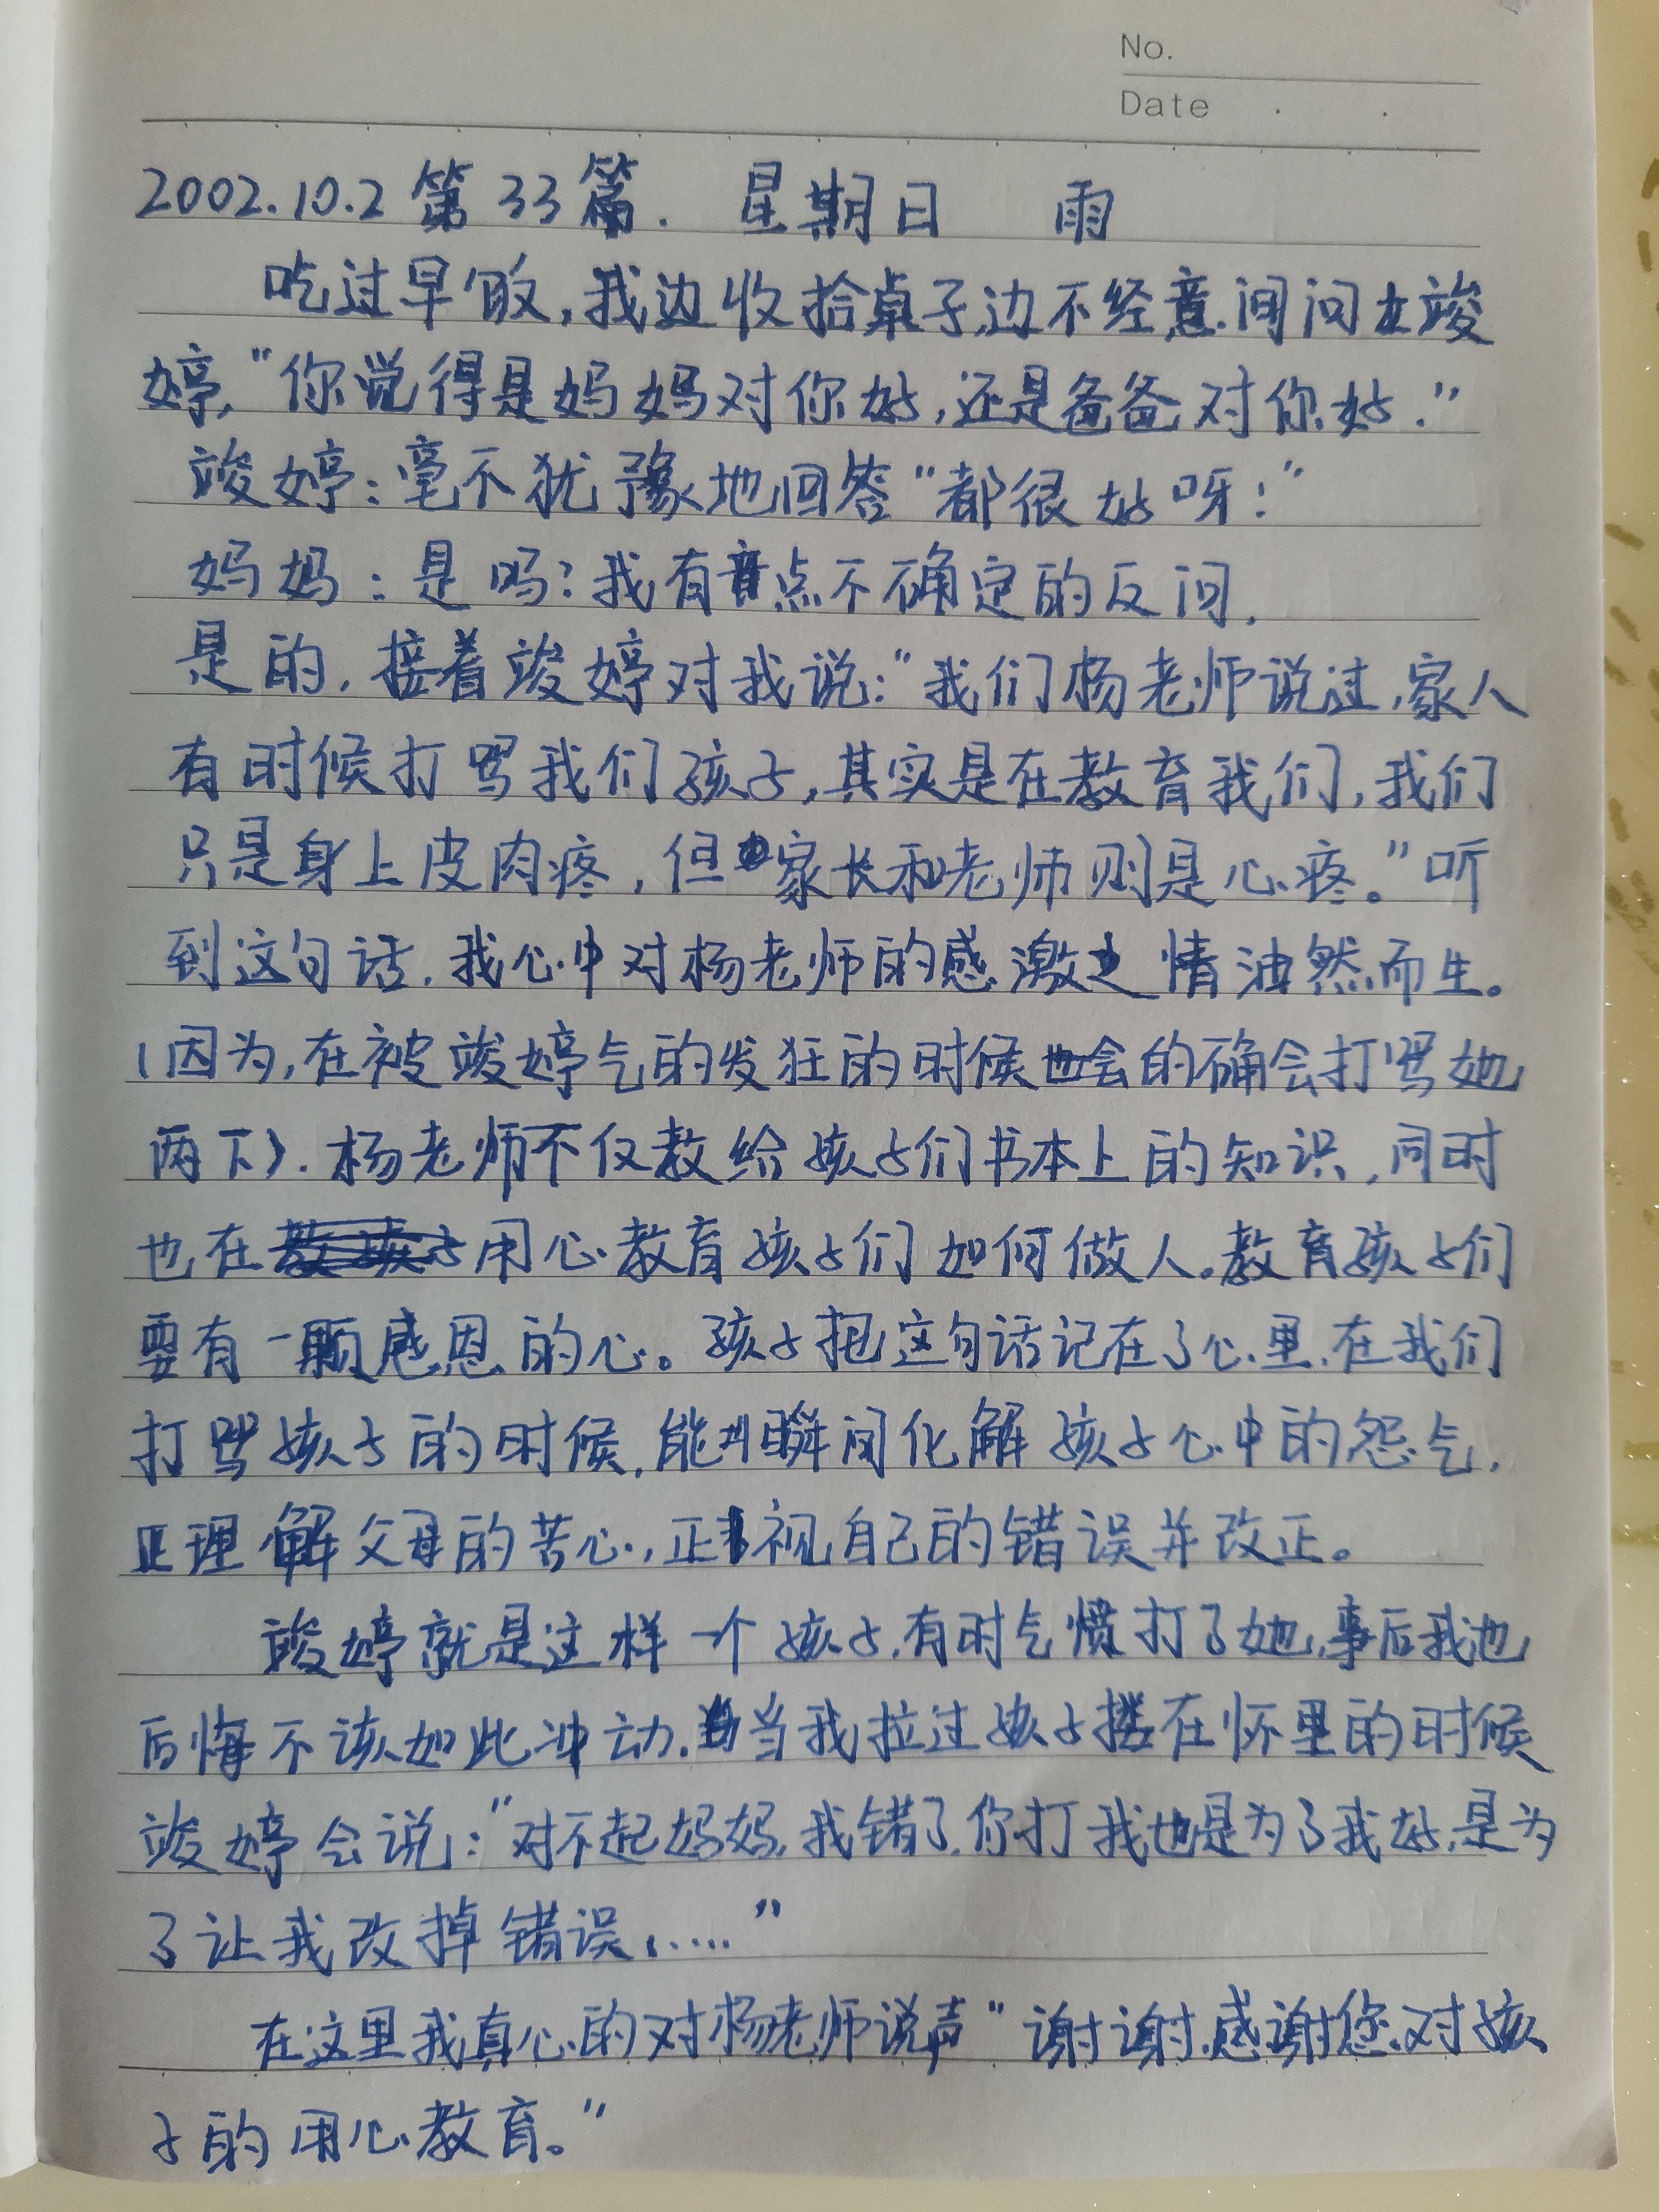 No.
Date
2002.10.2 第33篇. 星期日 雨
吃过早饭,我边收拾桌子,边不经意间问竣
婷,"你觉得是妈妈对你好,还是爸爸对你好."
竣婷:毫不犹豫地回答"都很好呀!"
妈妈:是吗?我有点不确定的反问.
是的,接着竣婷对我说:"我们杨老师说过,家人
有时候打骂我们孩子,其实是在教育我们,我们
只是身上皮肉疼,但家长和老师则是心疼。"听
到这句话,我心中对杨老师的感激之情油然而生。
(因为,在被竣婷气的发狂的时候的确会打骂她
两下).杨老师不仅教给孩子们书本上的知识,同时
也在用心教育孩子们如何做人。教育孩子们
要有一颗感恩的心。孩子把这句话记在了心里,在我们
打骂孩子的时候,能瞬间化解孩子心中的怨气,
理解父母的苦心,正视自己的错误并改正。
竣婷就是这样一个孩子,有时气愤打了她,事后我也
后悔不该如此冲动.当我拉过孩子搂在怀里的时候
竣婷会说:"对不起妈妈,我错了,你打我也是为了我好,是为
了让我改掉错误,....."
在这里我真心的对杨老师说声"谢谢.感谢您对孩
子的用心教育。"